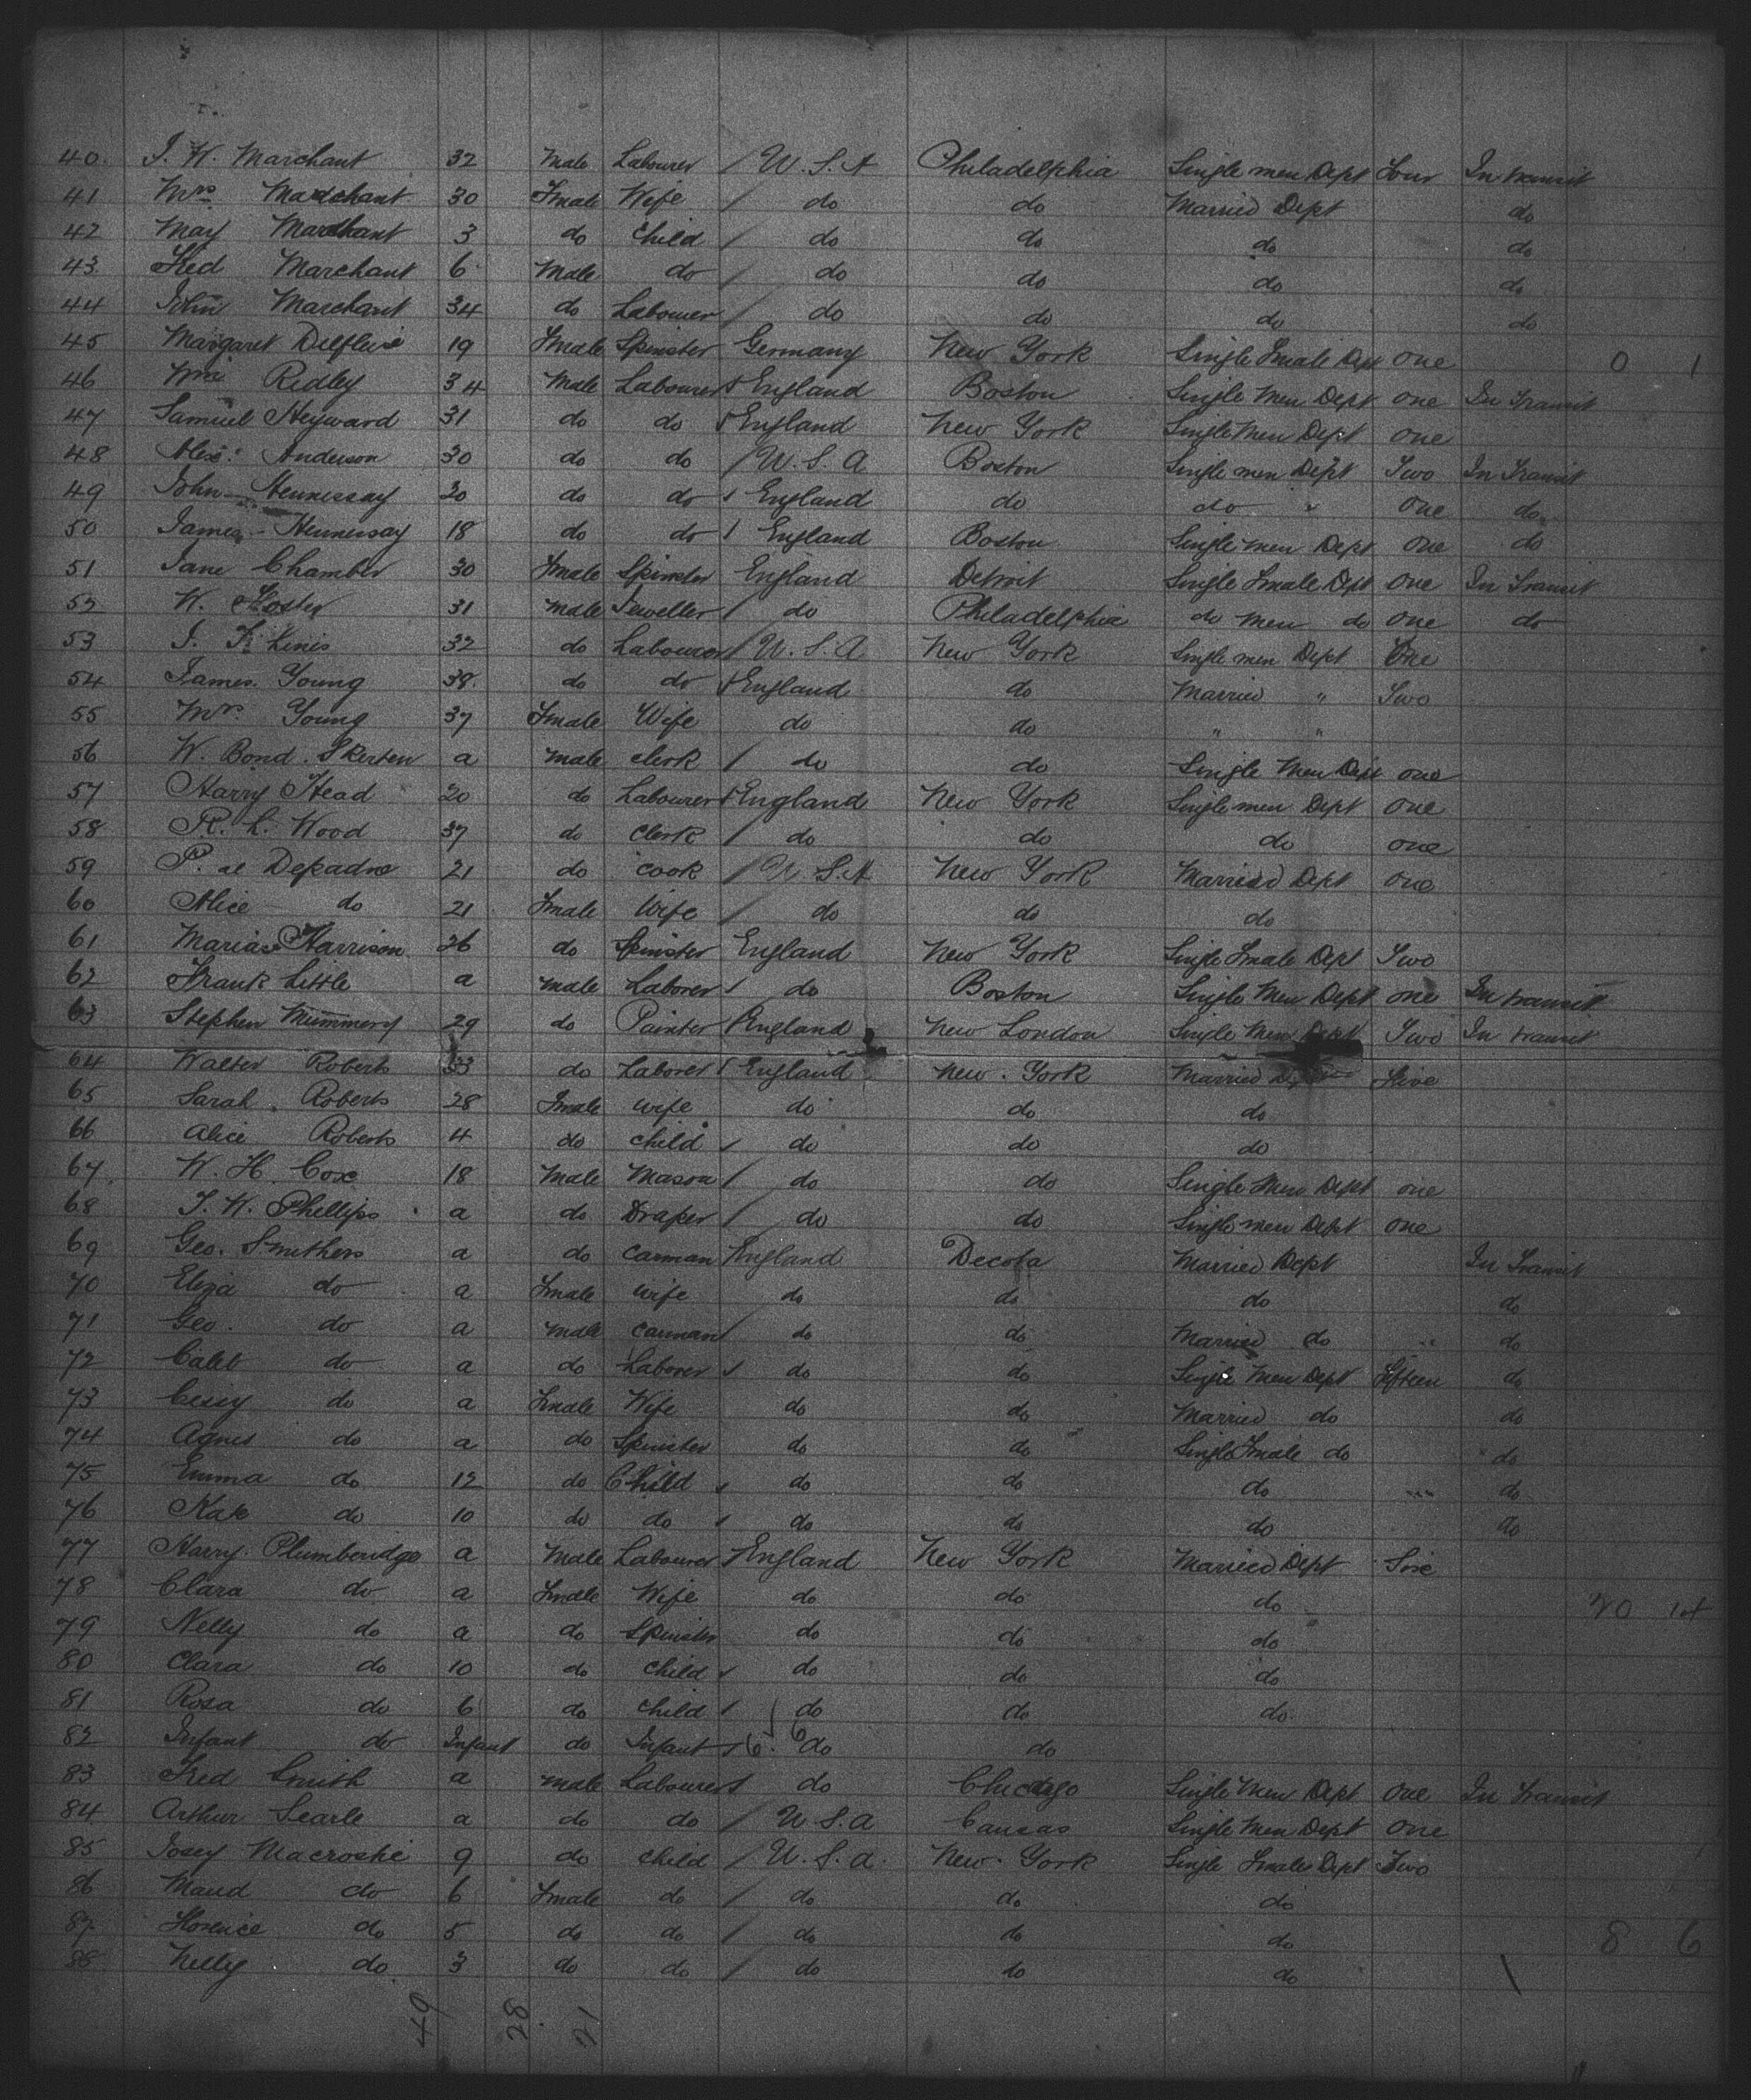 40. J. W. Marchant 32 Male Labourer / U.S.A Philadelphia Single men Dept Four In transit
41 Mrs Marchant 30 Fmale Wife / do do Married Dept do
42 May Marchant 3 do Child / do do do do
43. Fred Marchant 6 Male do / do do do do
44 John Marchant 34 do Labourer / do do do do
45 Margaret 19 Fmale Spinster Germany New York Single Fmale Dept one 0 1
46 Wm Ridley 34 Male Labourer England Boston Single Men Dept one In Transit
47 Samuel Heyward 31 do do England New York Single Men Dept one
48 Alex: Anderson 30 do do / U.S.A Boston Single men Dept Two In Transit
49 John Hennessay 20 do do / England do do " one do
50 James Hennessay 18 do do / England Boston Single men Dept one do
51 Jane Chamber 30 Fmale Spinster England Detroit Single Fmale Dept one In Transit
52 W. Foster 31 male Jeweller / do Philadelphia do men do one do
53 J. F. Linis 32 do Labourer / U.S.A New York Single men Dept One
54 James Young 38. do do England do Married " Two
55 Mrs. Young 37 Fmale Wife do do " "
56 W. Bond. Skerten a male clerk / do do Single Men Dept one
57 Harry Head 20 do Labourer England New York Single men Dept one
58 R. L. Wood 37 do Clerk / do do do one
59 P. de Depadro 21 do cook / U.S.A New York Married Dept one
60 Alice do 21 Fmale Wife / do do do
61 Maria Harrison 26 do Spinster England New York Single Fmale Dept Two
62 Frank Little a male Laborer / do Boston Single Men Dept one In transit
63 Stephen Mummery 29 do Painter / England New London Single Men Dept Two In transit
64 Walter Roberts 33 do Laborer / England New. York Married Five
65 Sarah Roberts 28 Fmale wife do do do
66 Alice Roberts 4 do child / do do do
67. W. H. Cox 18 Male Mason / do do Single Men Dept one
68 J. W. Phillips a do Draper / do do Single men Dept one
69 Geo. Smithers a do carman England Decota Married Dept In Transit
70 Eliza do a Fmale wife do do do do
71 Geo. do a male carman / do do Married do " do
72 Caleb do a do Laborer / do do Single Men Dept fifteen do
73 Cissy do a Fmale Wife do do Married do do
74 Agnes do a do Spinster do do Single Fmale do do
75 Emma do 12 do Child / do do do do
76 Kate do 10 do do / do do do do
77 Harry. Plumberidge a Male Labourer England New York Married Dept Six
78 Clara do a Fmale Wife do do do 20 14
79 Nelly do a do Spinster do do do
80 Clara do 10 do child / do do do
81 Rosa do 6 do child / do do do
82 Infant do Infant do Infant / 6. 6 do do
83 Fred Smith a male Labourer / do Chicago Single Men Dept one In Transit
84 Arthur Searle a do do / U.S.a Cansas Single Men Dept one
85 Josey Macroskie 9 do child / U.S.a. New. York Single Fmale Dept Two
86 Maud do 6 Fmale do / do do do
87 Florence do 5 do do / do do do 8 6
88 Nelly do 3 do do / do do do
49 28 21